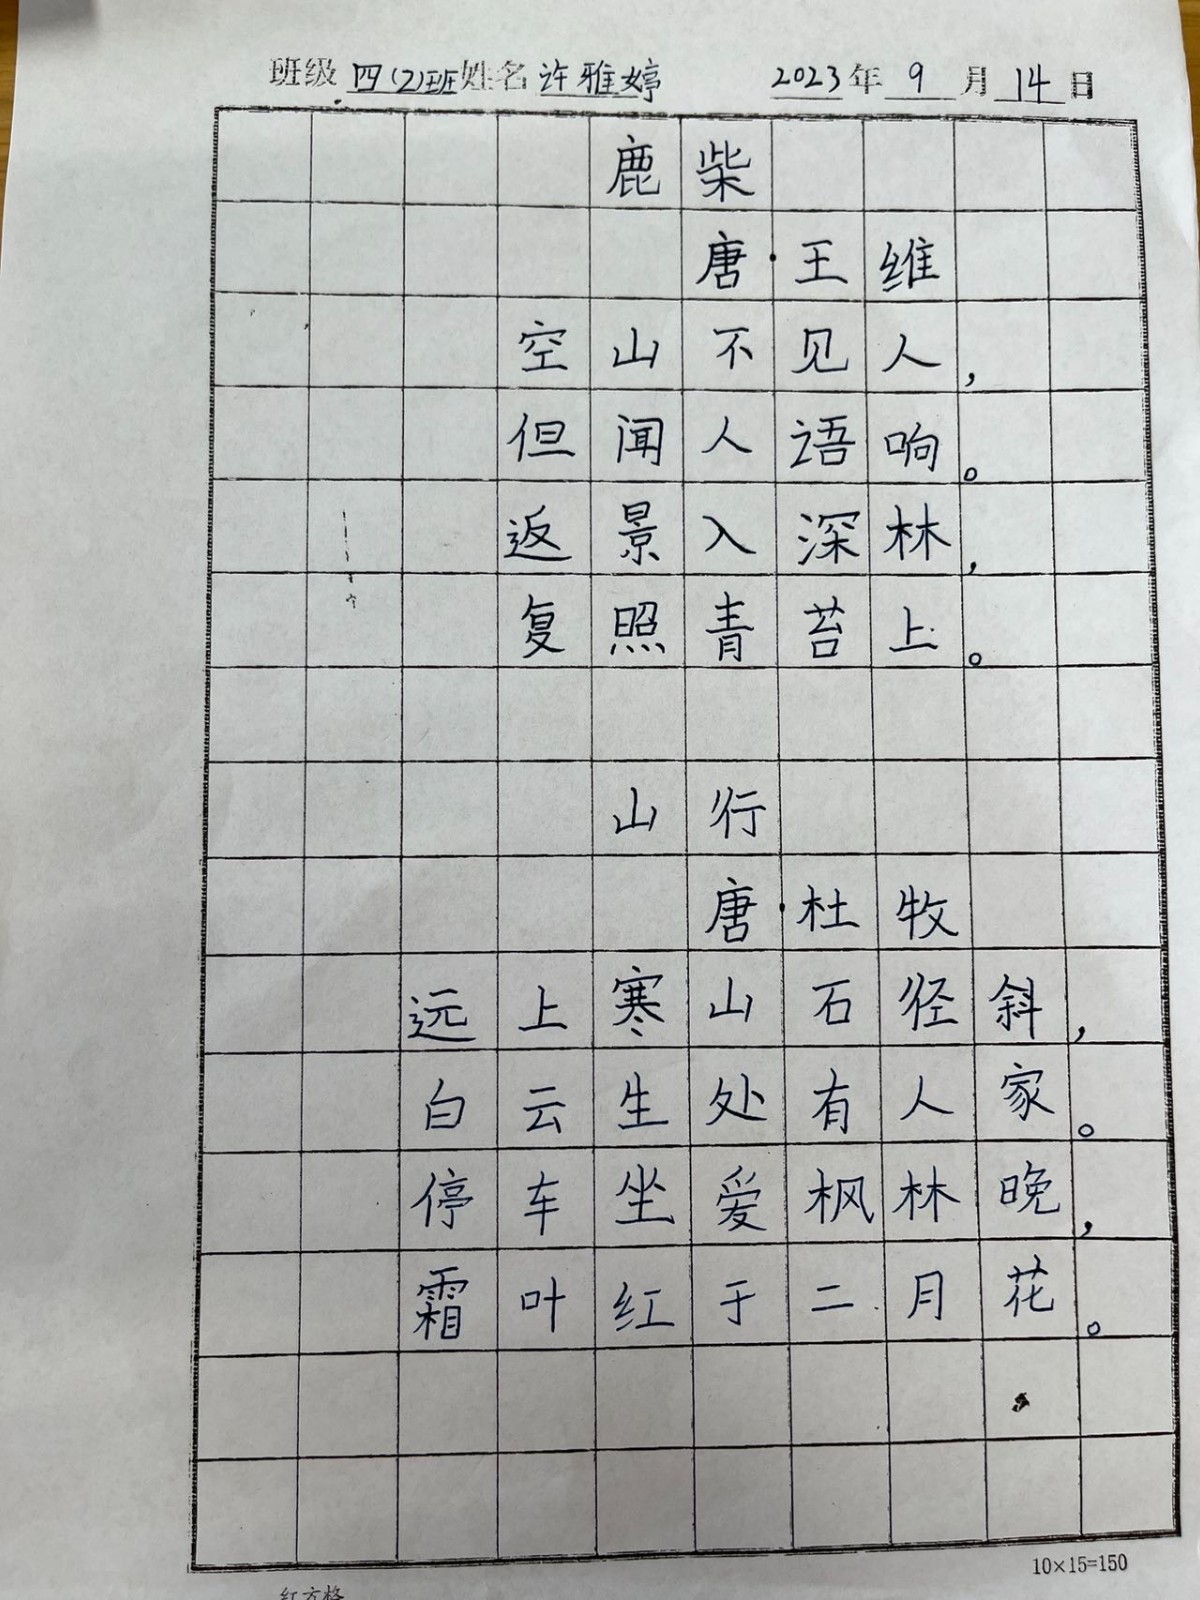 班级 四(2)班 姓名 许雅婷 2023年 9 月 14 日
鹿柴
唐·王维
空山不见人，
但闻人语响。
返景入深林，
复照青苔上。
山行
唐·杜牧
远上寒山石径斜，
白云生处有人家。
停车坐爱枫林晚，
霜叶红于二月花。
10×15=150
红方格